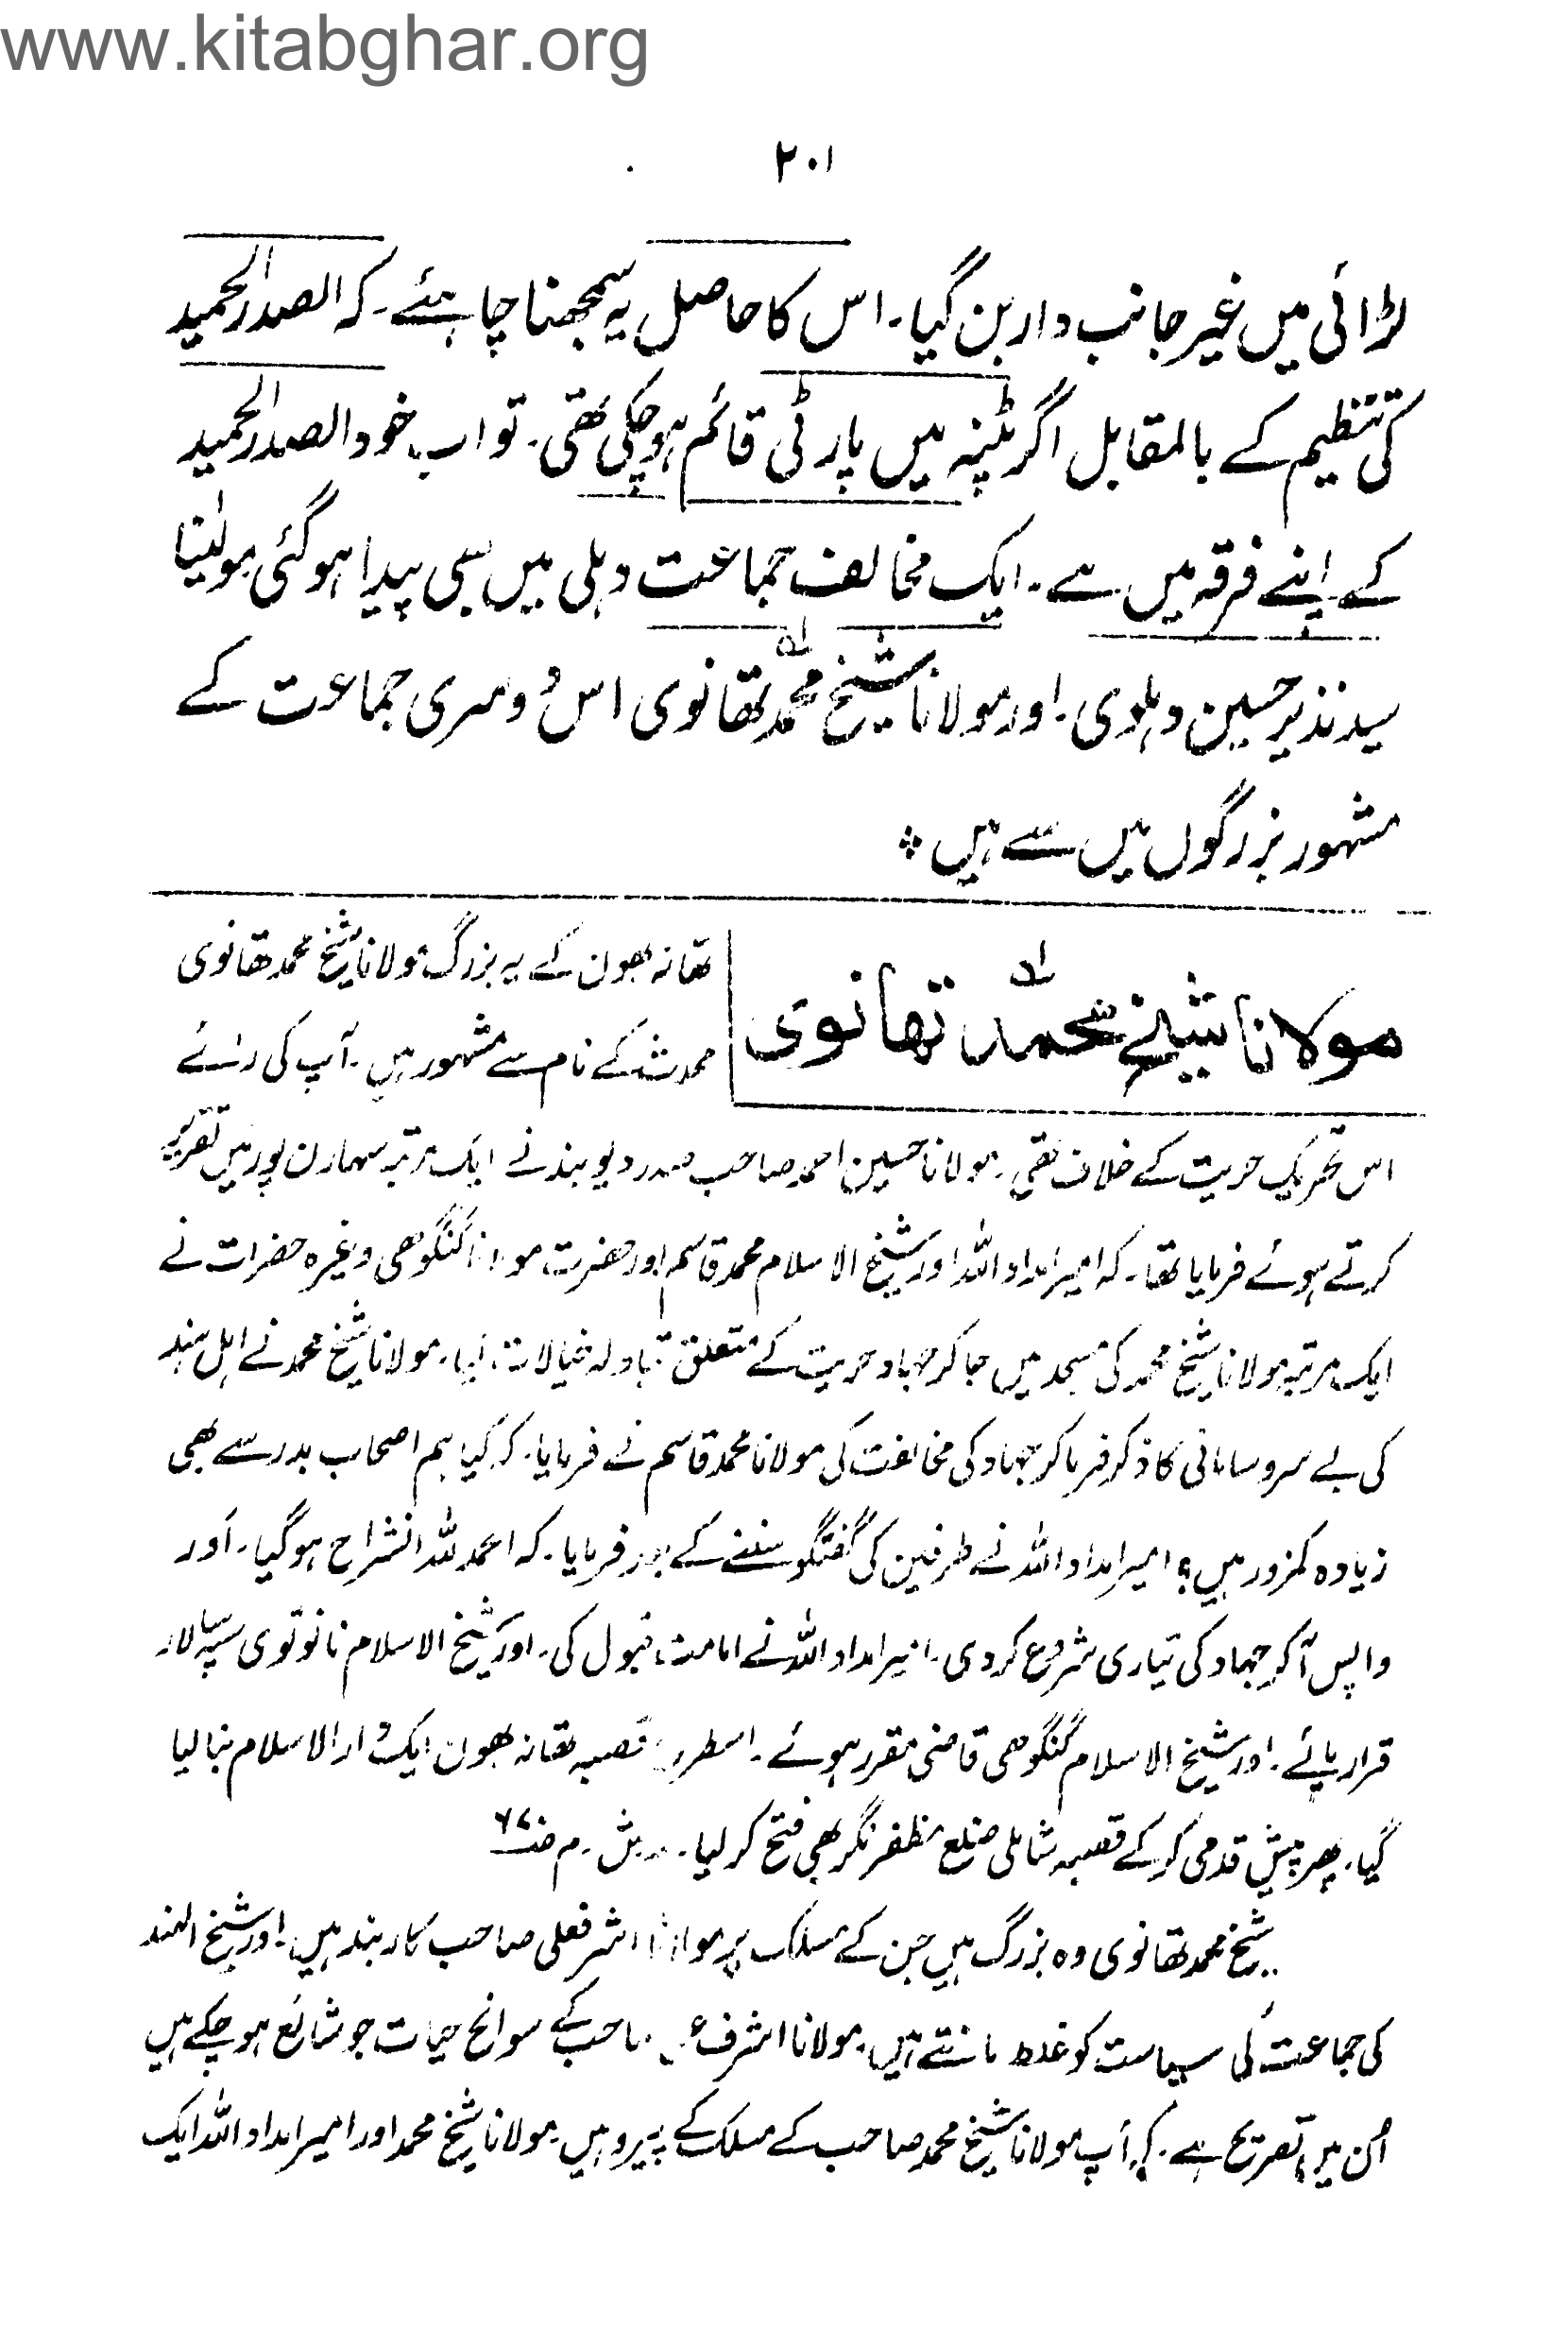 www.kitabghar.org
۲۰۱
لڑائی میں غیر جانب دار بن گیا۔ اس کا حاصل یہ سمجھنا چاہئے۔ کہ الصدر الحمید
کی تنظیم کے بالمقابل اگر پٹنہ میں پارٹی قائم ہو چکی تھی۔ تو اب خود الصدر الحمید
کے اپنے فرقہ میں سے۔ ایک مخالف جماعت دہلی میں بھی پیدا ہو گئی مولٰینا
سید نذیر حسین دہلوی۔ اور مولانا شیخ محمد تھانوی اس دُوسری جماعت کے
مشہور بزرگوں میں سے ہیں ؞
مولانا شیخ محمد تھانوی
تھانہ بھون کے یہ بزرگ مولانا شیخ محمد تھانوی
محدث کے نام سے مشہور ہیں۔ آپ کی رائے
اس تحریک حریت کے خلاف تھی۔ مولانا حسین احمد صاحب صدر دیوبند نے ایک مرتبہ سہارن پور میں تقریر
کرتے ہوئے فرمایا تھا۔ کہ امیر امداد اللہ اور شیخ الاسلام محمد قاسم اور حضرت مولانا گنگوھی وغیرہ حضرات نے
ایک مرتبہ مولانا شیخ محمد کی مسجد میں جا کر جہاد حریت کے متعلق تبادلہ خیالات کیا۔ مولانا شیخ محمد نے اہل ہند
کی بے سروسامانی کا ذکر فرما کر جہاد کی مخالفت کی مولانا محمد قاسم نے فرمایا۔ کہ کیا ہم اصحاب بدر سے بھی
زیادہ کمزور ہیں؟ امیر امداد اللہ نے طرفین کی گفتگو سننے کے بعد فرمایا۔ کہ الحمد للہ انشراح ہو گیا۔ اور
واپس آکر جہاد کی تیاری شروع کر دی۔ امیر امداد اللہ نے امامت قبول کی۔ اور شیخ الاسلام نانوتوی سپہ سالار
قرار پائے۔ اور شیخ الاسلام گنگوھی قاضی مقرر ہوئے۔ اسطرح قصبہ تھانہ بھون ایک دار الاسلام بنا لیا
گیا۔ پھر پیش قدمی کر کے قصبہ شاملی ضلع مظفر نگر بھی فتح کر لیا۔
شیخ محمد تھانوی وہ بزرگ ہیں جن کے مسلک پر مولانا اشرفعلی صاحب کاربند ہیں۔ اور شیخ الہند
کی جماعت کی سیاست کو غلط مانتے ہیں۔ مولانا اشرف علی صاحب کے سوانح حیات جو شائع ہو چکے ہیں
اُن میں تصریح ہے۔ کہ آپ مولانا شیخ محمد صاحب کے مسلک کے پیرو ہیں۔ مولانا شیخ محمد اور امیر امداد اللہ ایک